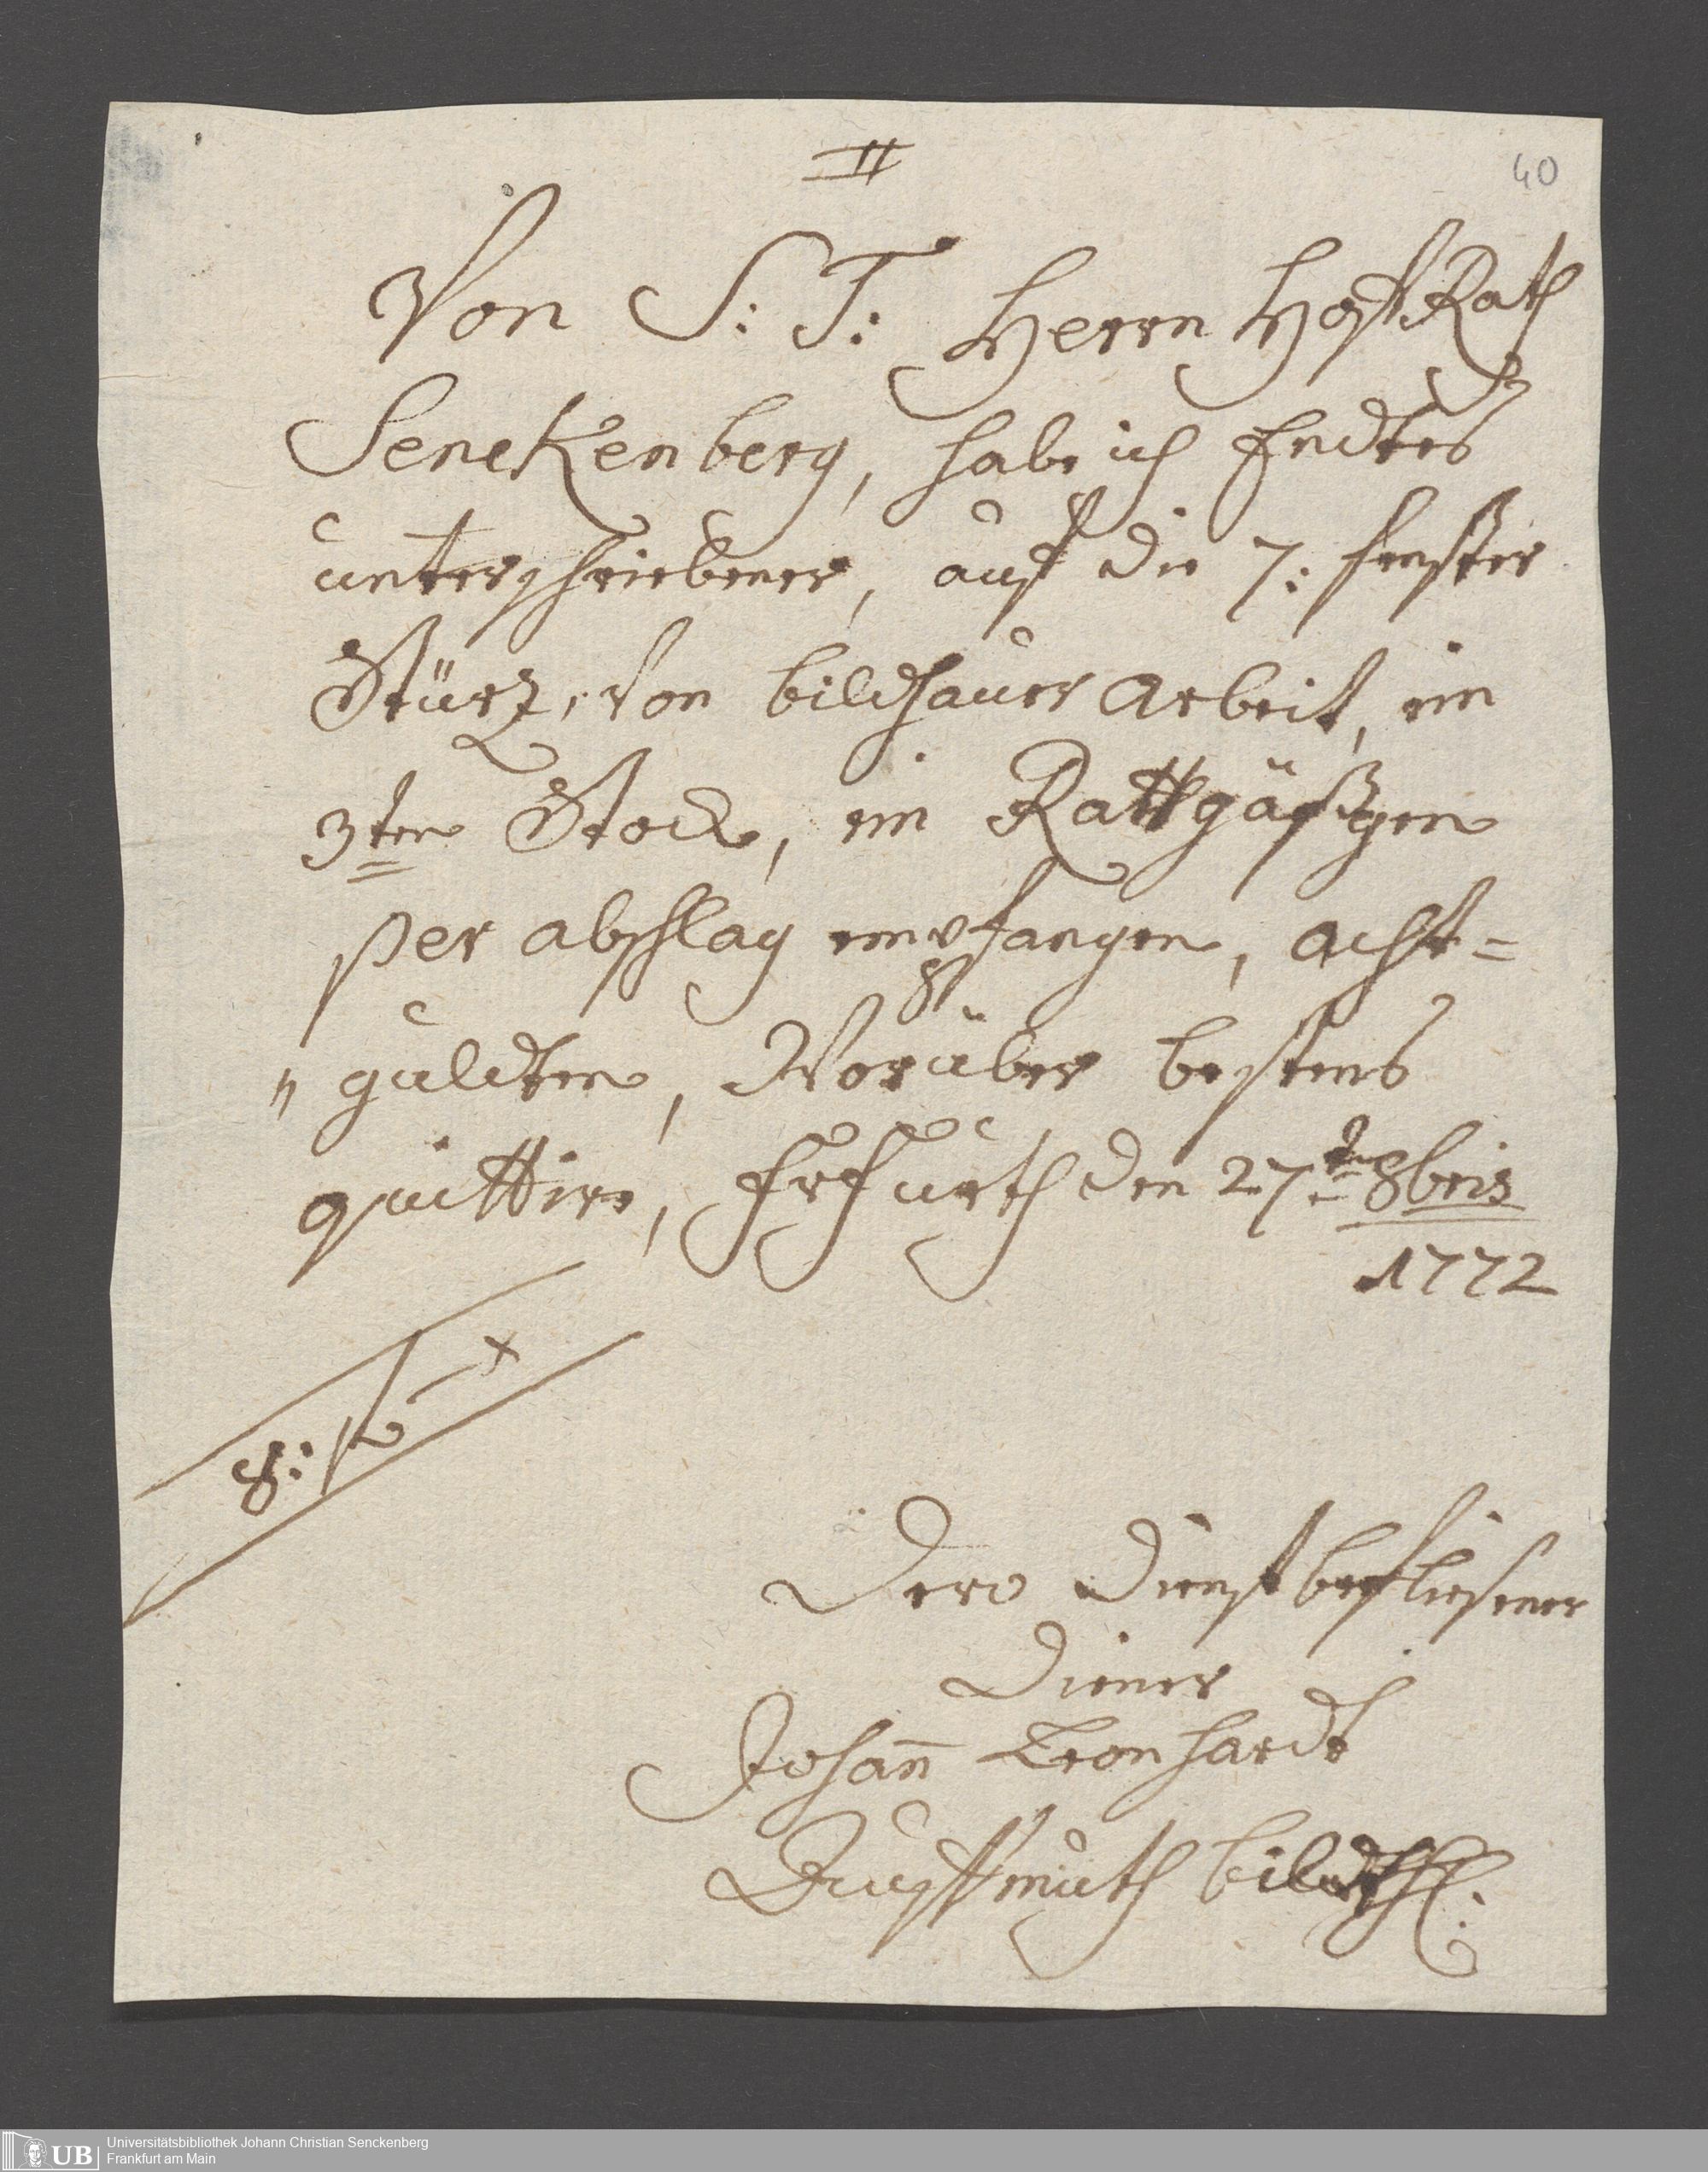 II
40
Von S: T: Herrn Hoff Rath
Senckenberg, habe ich Endtes
unterschriebener, auff die 7: fenster
Stürtz, von bildhauer Arbeit, im
3ten Stock, im Rattgäßgen
per abschlag empfangen, acht=
" guldten, Worüber bestens
quittire, Frfurth den 27ten 8bris
1772
8: f – x
Dero Dienstbefliesener
Diener
Johann Leonhardt
Auffmuth bildth:
UB
Universitätsbibliothek Johann Christian Senckenberg
Frankfurt am Main